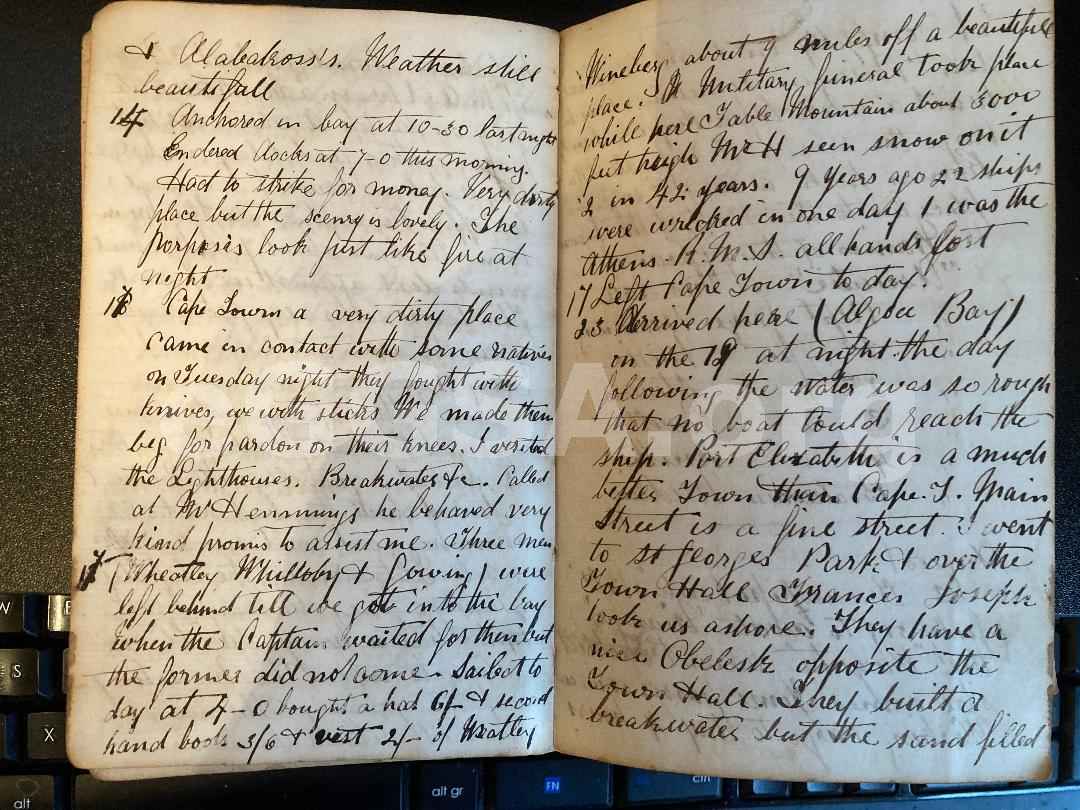 & Alabatross's. Weather still
beautifull
14 Anchored in bay at 10-30 last night
Endered docks at 7-0 this morning.
Had to strike for money. Very dirty
place but the scenry is lovely. The
Porposis look just like fire at
night
Cape Town a very dirty place
came in contact with some natives
on Tuesday night they fought with
knives, we with sticks We made them
beg for pardon on their knees. I visited
the Lighthouses. Breakwater &c. Called
at Mr Hemmings he behaved very
kind promis to assist me. Three men
(Wheatley Whilloby & Gowing) were
left behind till we got into the bay
when the Captain waited for them but
the former did not come. Sailed to
day at 4-0 bought a hat 6/- & second
hand books 3/6 & vest 2/- of Weatley
Wineberg about 9 miles off a beautifull
place. A Military funeral took place
while here Table Mountain about 3000
fut heigh Mr H seen snow on it
2 in 42 years. 9 years ago 22 ships
were wrecked in one day 1 was the
Athens. R.M.S. all hands lost
17 Left Cape Town to day.
23 Arrived here (Algoa Bay)
on the 19 at night the day
following the water was so rough
that no boat could reach the
ship. Port Elizabeth is a much
better Town than Cape T. Main
Street is a fine street. I went
to St Georges Park & over the
Town Hall Frances Joseph
took us ashore. They have a
nice Obelesk opposite the
Town Hall. They built a
breakwater but the sand filled
W
E
S
X
alt
alt gr
FN
ctrl